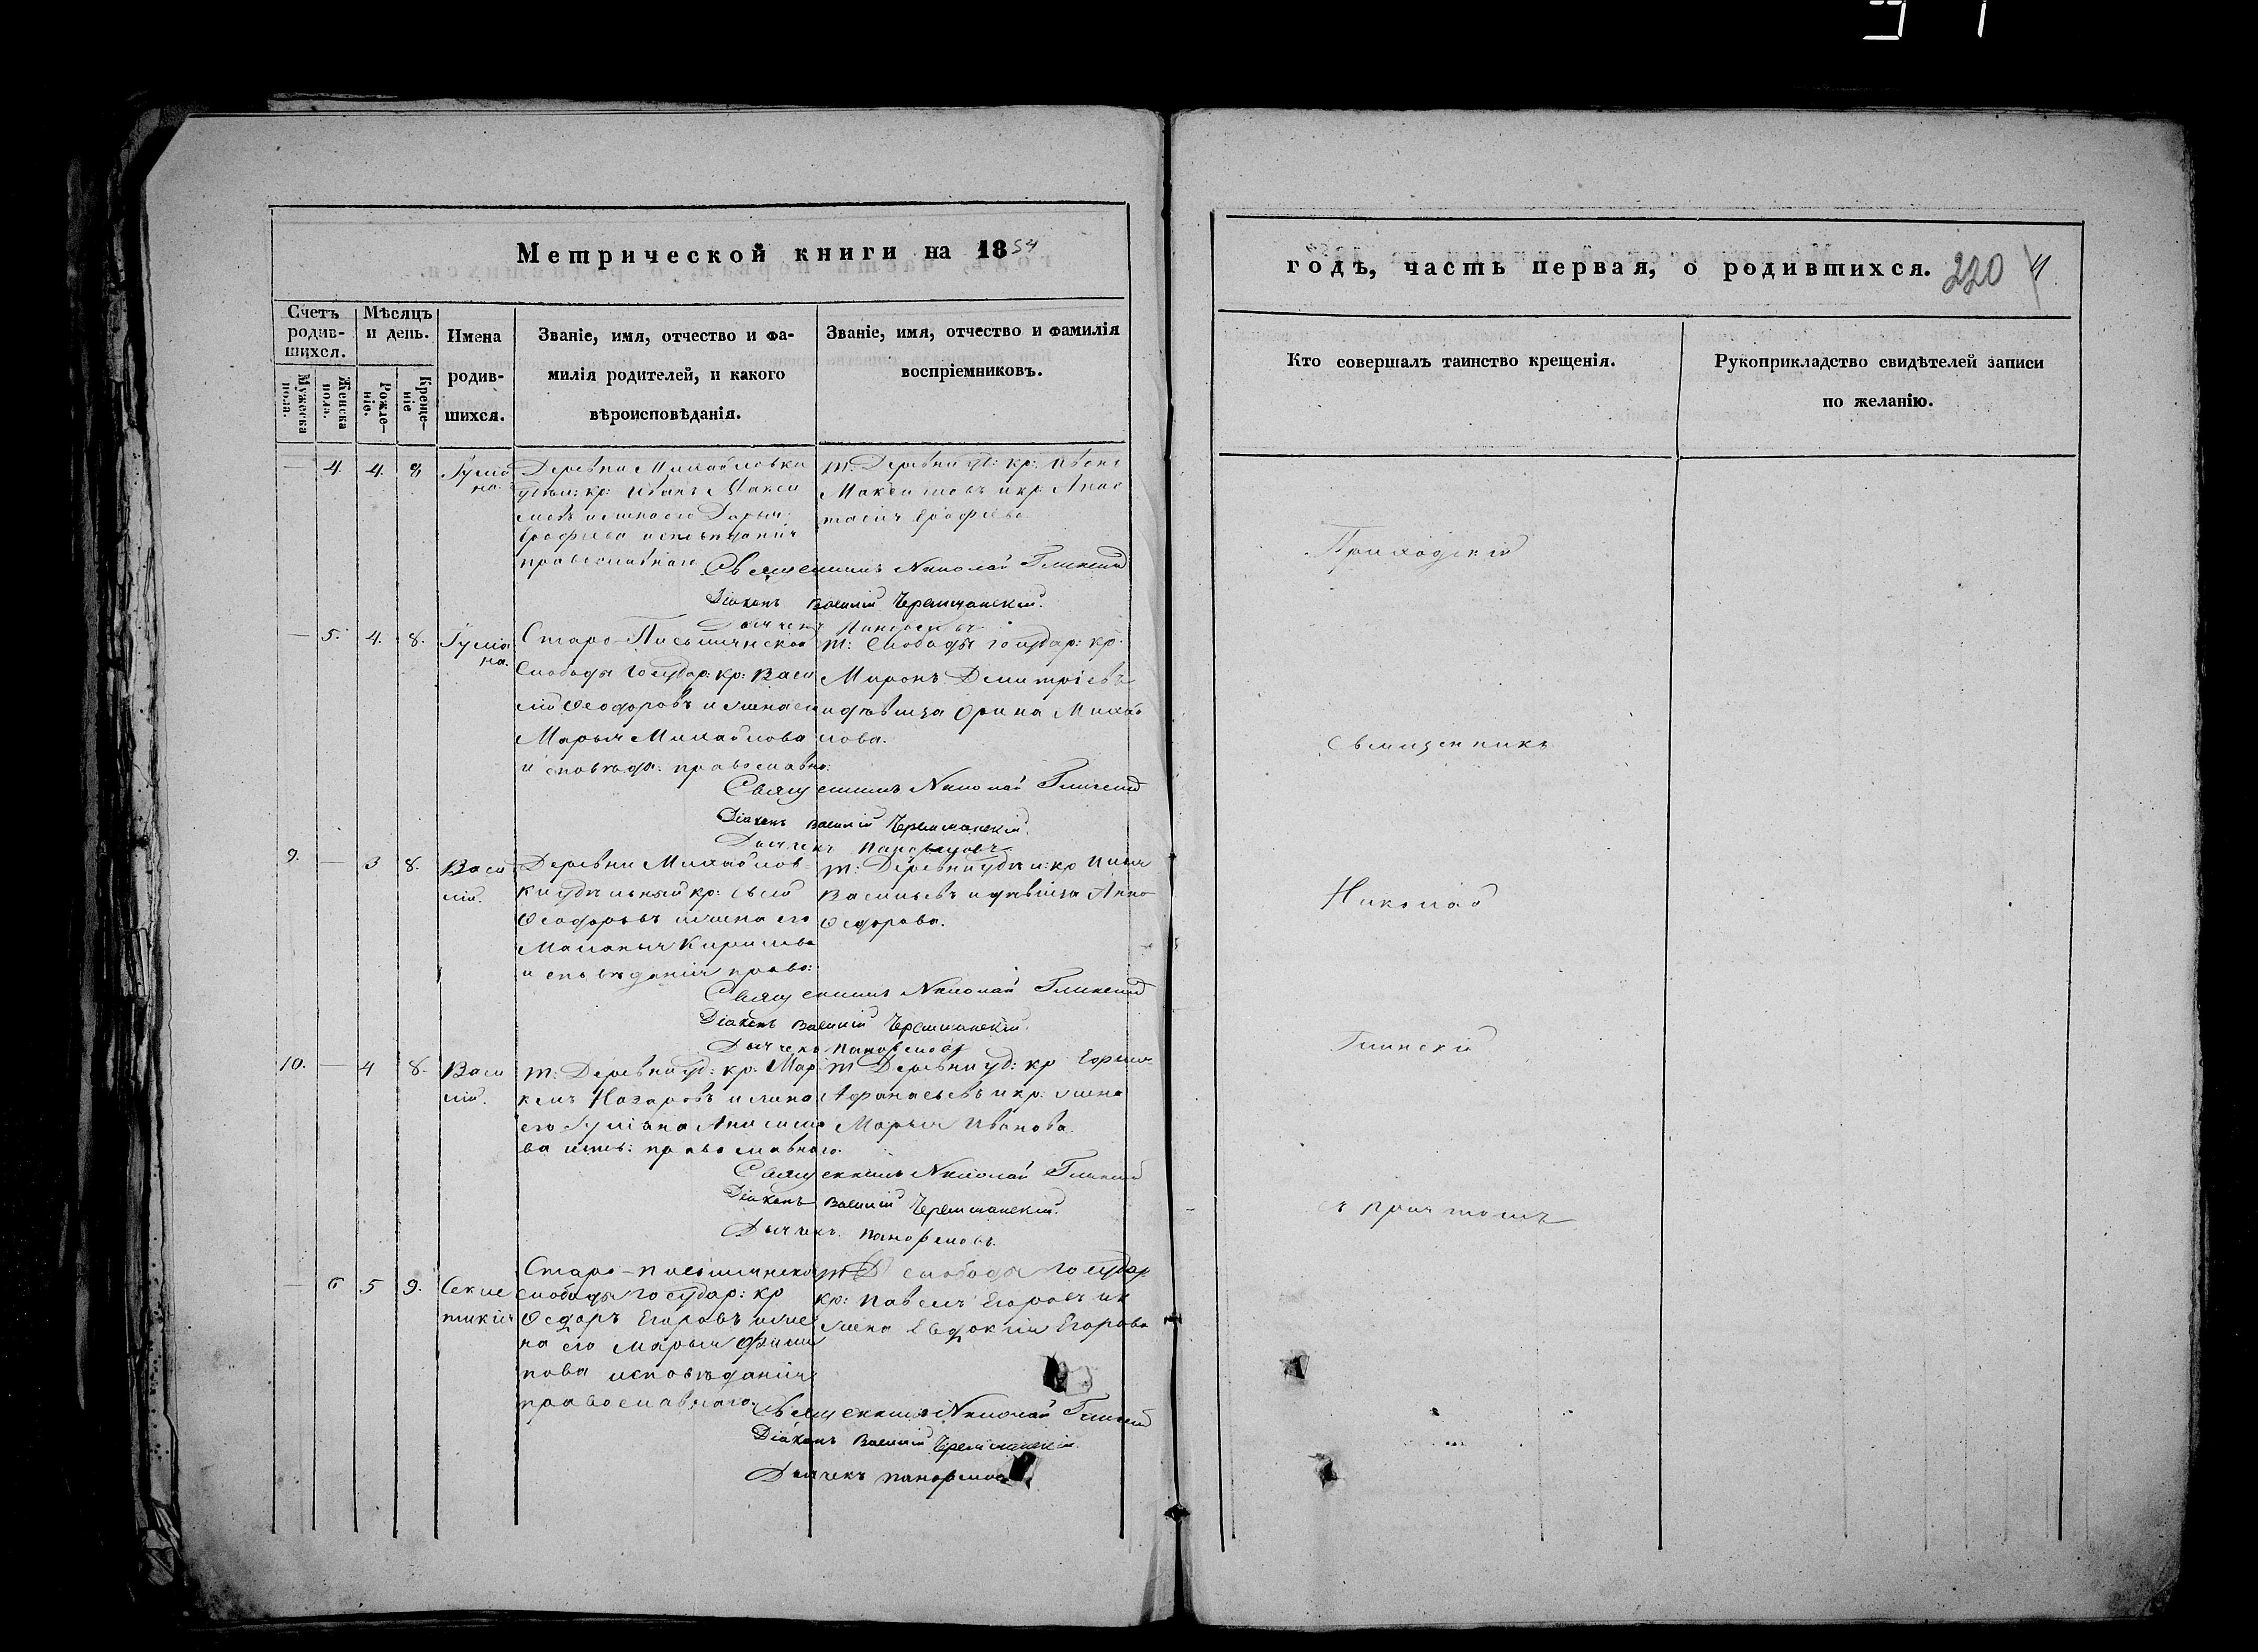 Метрической книги на 1854
годъ, часть первая, о родившихся. 220
Счетъ родив-шихся.
Мѣсяцъ и день.
Мужеска пола.
Женска пола.
Рожде-ніе.
Креще-ніе
Имена
родив-
шихся.
Званіе, имя, отчество и фа-
милія родителей, и какого
вѣроисповѣданія.
Званіе, имя, отчество и фамилія
воспріемниковъ.
Кто совершалъ таинство крещенія.
Рукоприкладство свидѣтелей записи
по желанію.
— 4. 4. 8
Іуліа
на.
Деревни Михайловки
кр: Иванъ Макси
мовъ и жена его Дарья
Ерофеева исповѣданія
православнаго
т: Деревни уд: кр: Иванъ
Максимовъ и кр: Анас
тасія Ерофеева
Священникъ Николай Глинскій
Діаконъ Василій Черемшанскій.
Дьячекъ
— 5. 4. 8.
Іуліа
на.
Старо-Письмянской
Слободы Государ: кр: Васи
лій Ѳеодоровъ и жена его
Марья Михайлова
исповѣда: православна:
т: Слободы государ: кр:
Миронъ Димитріевъ
и дѣвица Орина Михай
лова.
Священникъ Николай Глинскій
Діаконъ Василій Черемшанскій.
Дьячекъ
9. — 3 8.
Васи
лій.
Деревни Михайлов
ки удѣльный кр:
Ѳеодоровъ и жена его
Маланья Кирилова
исповѣданія право:
т: Деревни удѣл: кр Илья
Васильевъ и дѣвица Анна
Ѳедорова.
Священникъ Николай Глинскій
Діаконъ Василій Черемшанскій.
Дьячекъ
10. — 4 8.
Васи
лій.
т: Деревни уд: кр: Мар
келъ Назаровъ и жена
его Іуліана Аниси
ва испо: православнаго.
т Деревни уд: кр
Афанасьевъ и кр: жена
Марья Иванова.
Священникъ Николай Глинскій
Діаконъ Василій Черемшанскій.
Дьячекъ
— 6 5 9.
Старо-Письмянской
слободы государ: кр
Ѳедоръ Егоровъ и же
на его Марья Фили
пова исповѣданія
православнаго.
слободы государ
кр: Павелъ Егоровъ и
жена Евдокия Егорова
Священникъ Николай Глинскій
Діаконъ Василій Черемшанскій.
Дьячекъ
Приходскій
священникъ
Николай
Глинскій
съ причтомъ